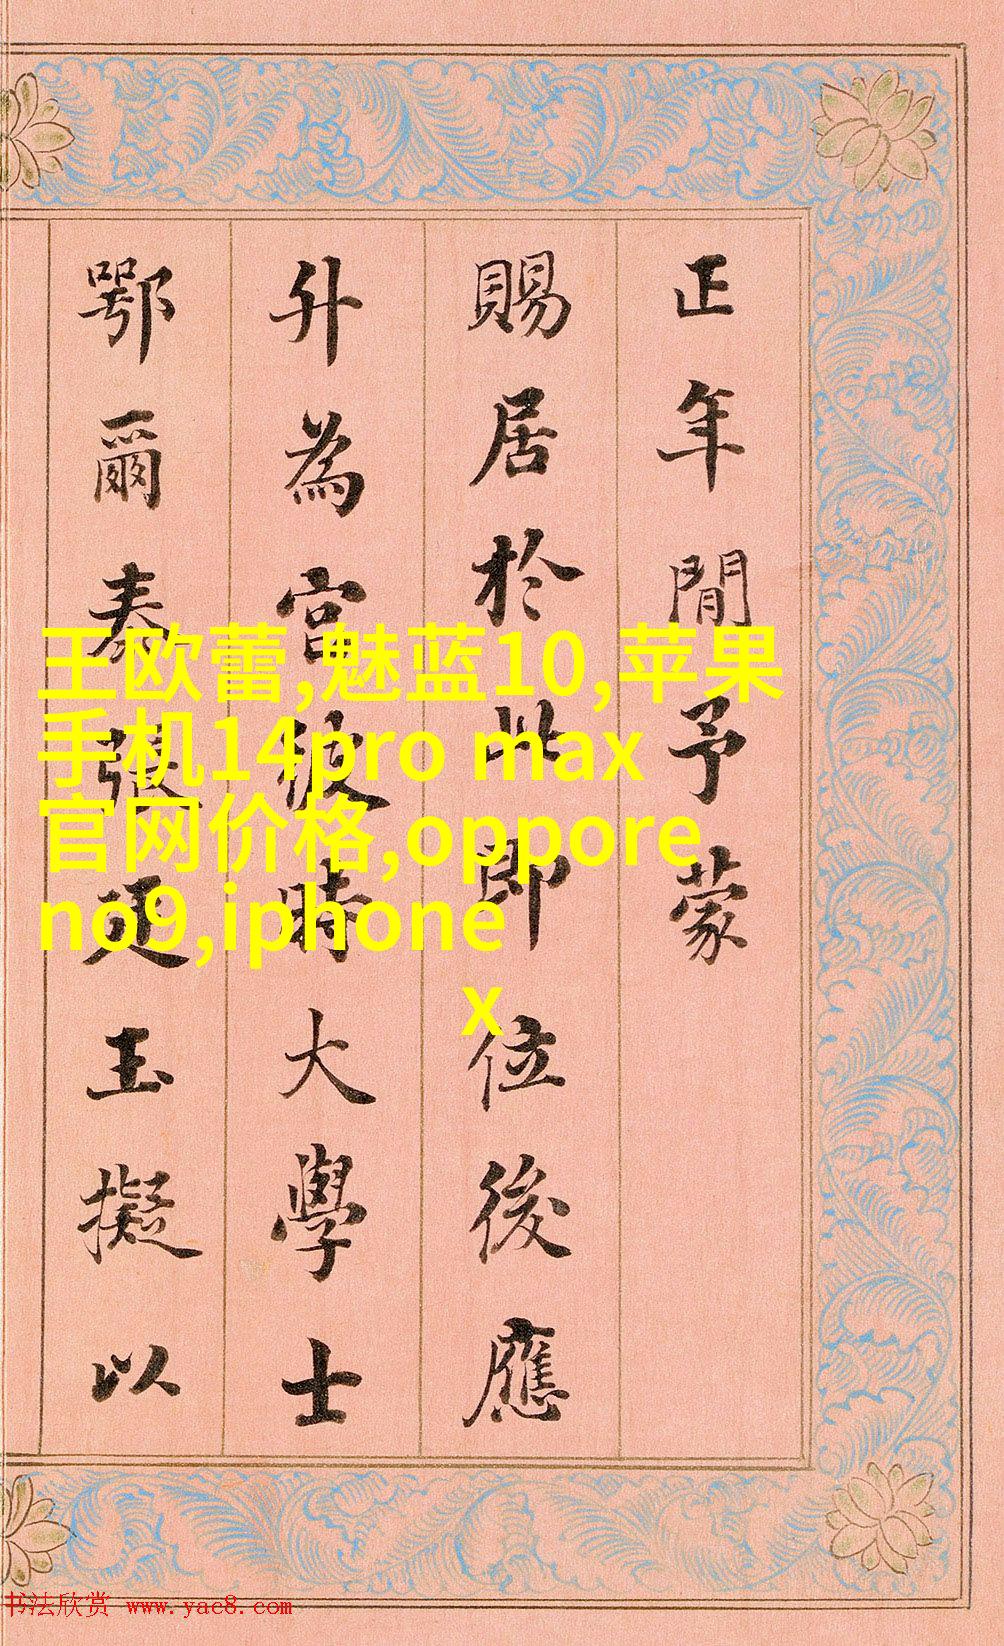 正年間予蒙
賜居於此即位後應
升為宮彼時大學士
鄂爾泰張廷玉擬以
王欧蕾,魅蓝10,苹果
手机14pro max
官网价格,oppore
no9,iphone
x
书法欣赏 www.yac8.com